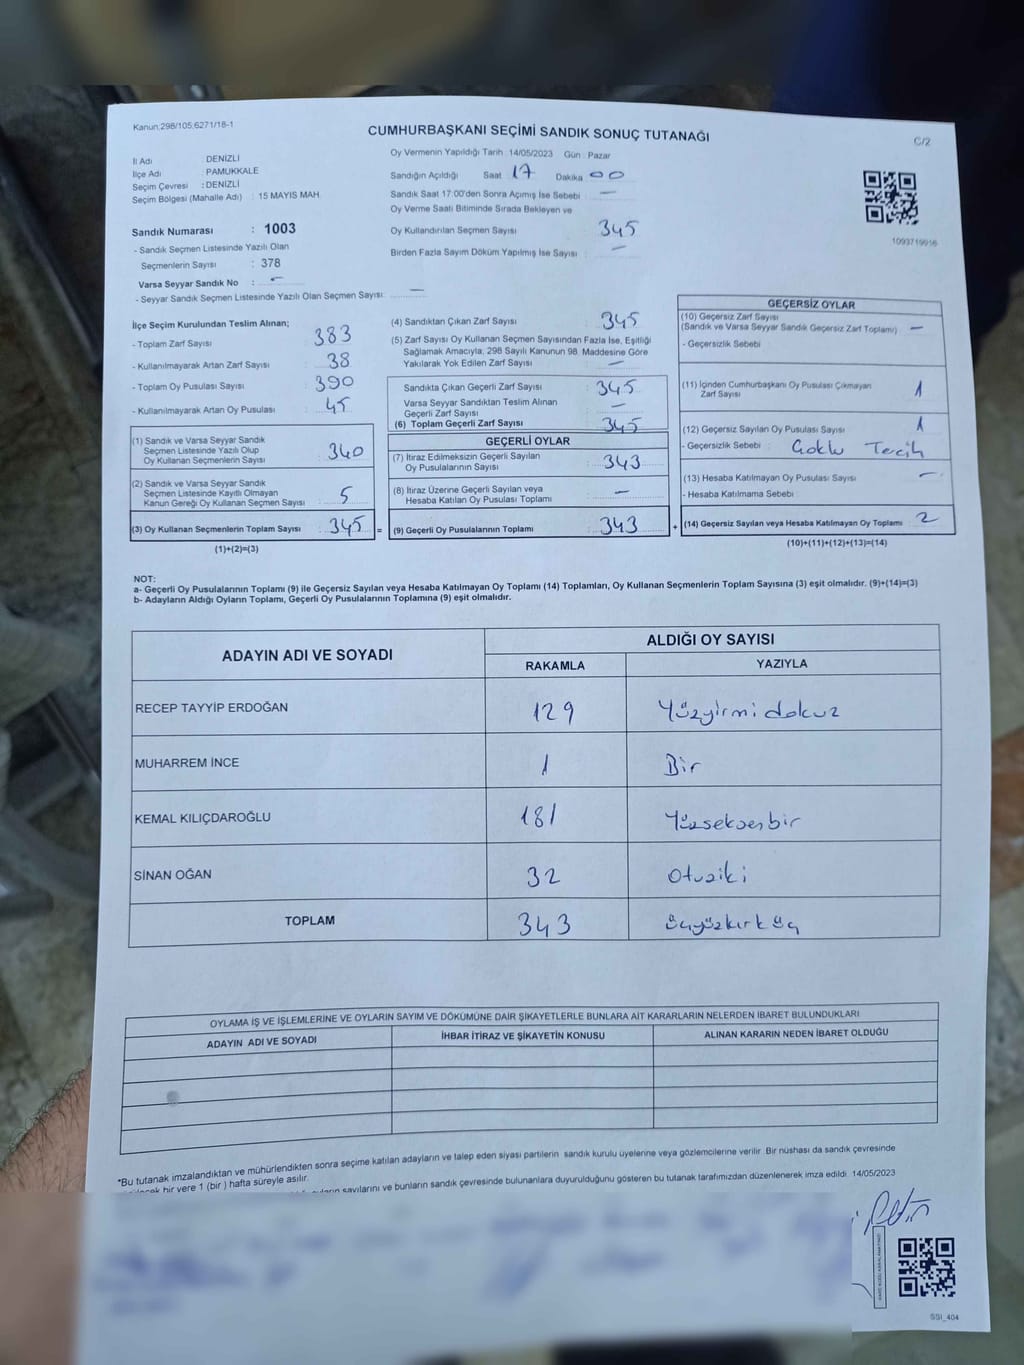 Kanun:298/105;6271/18-1
CUMHURBAŞKANI SEÇİMİ SANDIK SONUÇ TUTANAĞI
C/2
İl Adı DENİZLİ
İlçe Adı : PAMUKKALE
Seçim Çevresi : DENİZLİ
Seçim Bölgesi (Mahalle Adı) : 15 MAYIS MAH.
Oy Vermenin Yapıldığı Tarih : 14/05/2023 Gün : Pazar
Sandığın Açıldığı Saat 17 Dakika 00
Sandık Saat 17:00'den Sonra Açımış İse Sebebi : —
Oy Verme Saati Bitiminde Sırada Bekleyen ve
Oy Kullandırılan Seçmen Sayısı 345
Birden Fazla Sayım Döküm Yapılmış İse Sayısı : —
1093719916
Sandık Numarası : 1003
- Sandık Seçmen Listesinde Yazılı Olan
Seçmenlerin Sayısı : 378
Varsa Seyyar Sandık No : —
- Seyyar Sandık Seçmen Listesinde Yazılı Olan Seçmen Sayısı: —
İlçe Seçim Kurulundan Teslim Alınan;
- Toplam Zarf Sayısı : 383
- Kullanılmayarak Artan Zarf Sayısı : 38
- Toplam Oy Pusulası Sayısı : 390
- Kullanılmayarak Artan Oy Pusulası : 45
(1) Sandık ve Varsa Seyyar Sandık
Seçmen Listesinde Yazılı Olup
Oy Kullanan Seçmenlerin Sayısı : 340
(2) Sandık ve Varsa Seyyar Sandık
Seçmen Listesinde Kayıtlı Olmayan
Kanun Gereği Oy Kullanan Seçmen Sayısı : 5
(3) Oy Kullanan Seçmenlerin Toplam Sayısı : 345 =
(1)+(2)=(3)
(4) Sandıktan Çıkan Zarf Sayısı : 345
(5) Zarf Sayısı Oy Kullanan Seçmen Sayısından Fazla İse, Eşitliği
Sağlamak Amacıyla, 298 Sayılı Kanunun 98. Maddesine Göre
Yakılarak Yok Edilen Zarf Sayısı : —
Sandıkta Çıkan Geçerli Zarf Sayısı : 345
Varsa Seyyar Sandıktan Teslim Alınan
Geçerli Zarf Sayısı : —
(6) Toplam Geçerli Zarf Sayısı : 345
GEÇERLİ OYLAR
(7) İtiraz Edilmeksizin Geçerli Sayılan
Oy Pusulalarının Sayısı : 343
(8) İtiraz Üzerine Geçerli Sayılan veya
Hesaba Katılan Oy Pusulası Toplamı : —
(9) Geçerli Oy Pusulalarının Toplamı : 343 +
GEÇERSİZ OYLAR
(10) Geçersiz Zarf Sayısı
(Sandık ve Varsa Seyyar Sandık Geçersiz Zarf Toplamı) —
- Geçersizlik Sebebi :
(11) İçinden Cumhurbaşkanı Oy Pusulası Çıkmayan
Zarf Sayısı : 1
(12) Geçersiz Sayılan Oy Pusulası Sayısı : 1
- Geçersizlik Sebebi : Çoklu Tercih
(13) Hesaba Katılmayan Oy Pusulası Sayısı : —
- Hesaba Katılmama Sebebi :
(14) Geçersiz Sayılan veya Hesaba Katılmayan Oy Toplamı : 2
(10)+(11)+(12)+(13)=(14)
NOT:
a- Geçerli Oy Pusulalarının Toplamı (9) ile Geçersiz Sayılan veya Hesaba Katılmayan Oy Toplamı (14) Toplamları, Oy Kullanan Seçmenlerin Toplam Sayısına (3) eşit olmalıdır. (9)+(14)=(3)
b- Adayların Aldığı Oyların Toplamı, Geçerli Oy Pusulalarının Toplamına (9) eşit olmalıdır.
ADAYIN ADI VE SOYADI ALDIĞI OY SAYISI
RAKAMLA YAZIYLA
RECEP TAYYİP ERDOĞAN 129 Yüzyirmi dokuz
MUHARREM İNCE 1 Bir
KEMAL KILIÇDAROĞLU 181 Yüzseksenbir
SİNAN OĞAN 32 Otuziki
TOPLAM 343 üçyüzkırküç
OYLAMA İŞ VE İŞLEMLERİNE VE OYLARIN SAYIM VE DÖKÜMÜNE DAİR ŞİKAYETLERLE BUNLARA AİT KARARLARIN NELERDEN İBARET BULUNDUKLARI
ADAYIN ADI VE SOYADI İHBAR İTİRAZ VE ŞİKAYETİN KONUSU ALINAN KARARIN NEDEN İBARET OLDUĞU
*Bu tutanak imzalandıktan ve mühürlendikten sonra seçime katılan adayların ve talep eden siyasi partilerin sandık kurulu üyelerine veya gözlemcilerine verilir. Bir nüshası da sandık çevresinde
bir yere 1 (bir ) hafta süreyle asılır.
sayılarını ve bunların sandık çevresinde bulunanlara duyurulduğunu gösteren bu tutanak tarafımızdan düzenlenerek imza edildi. 14/05/2023
SSI_404